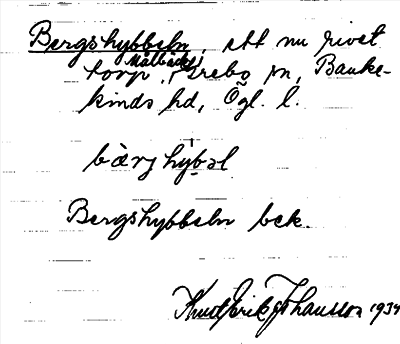 Bergshybbeln, ett nu rivet
torp, Målbäcks, Örebo sn, Banke-
kinds hd, Ögl. l.
bærj hy̌bəl
Bergshybbeln bek.
Knut Erik Johansson 1934